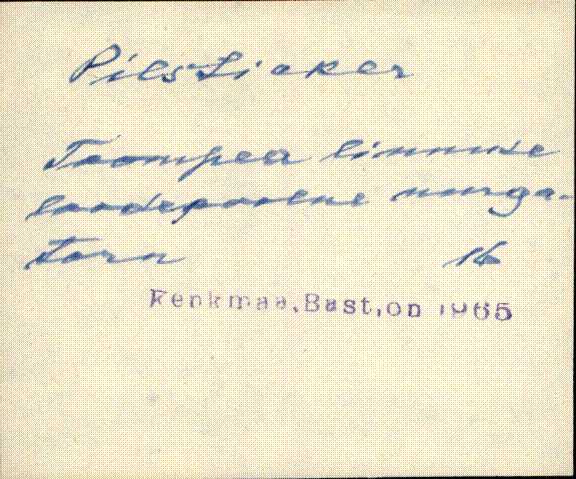 Pilsticker
Toompea linnuse
loodepoolne nurga-
torn 16
Kenkmaa, Bastion 1965